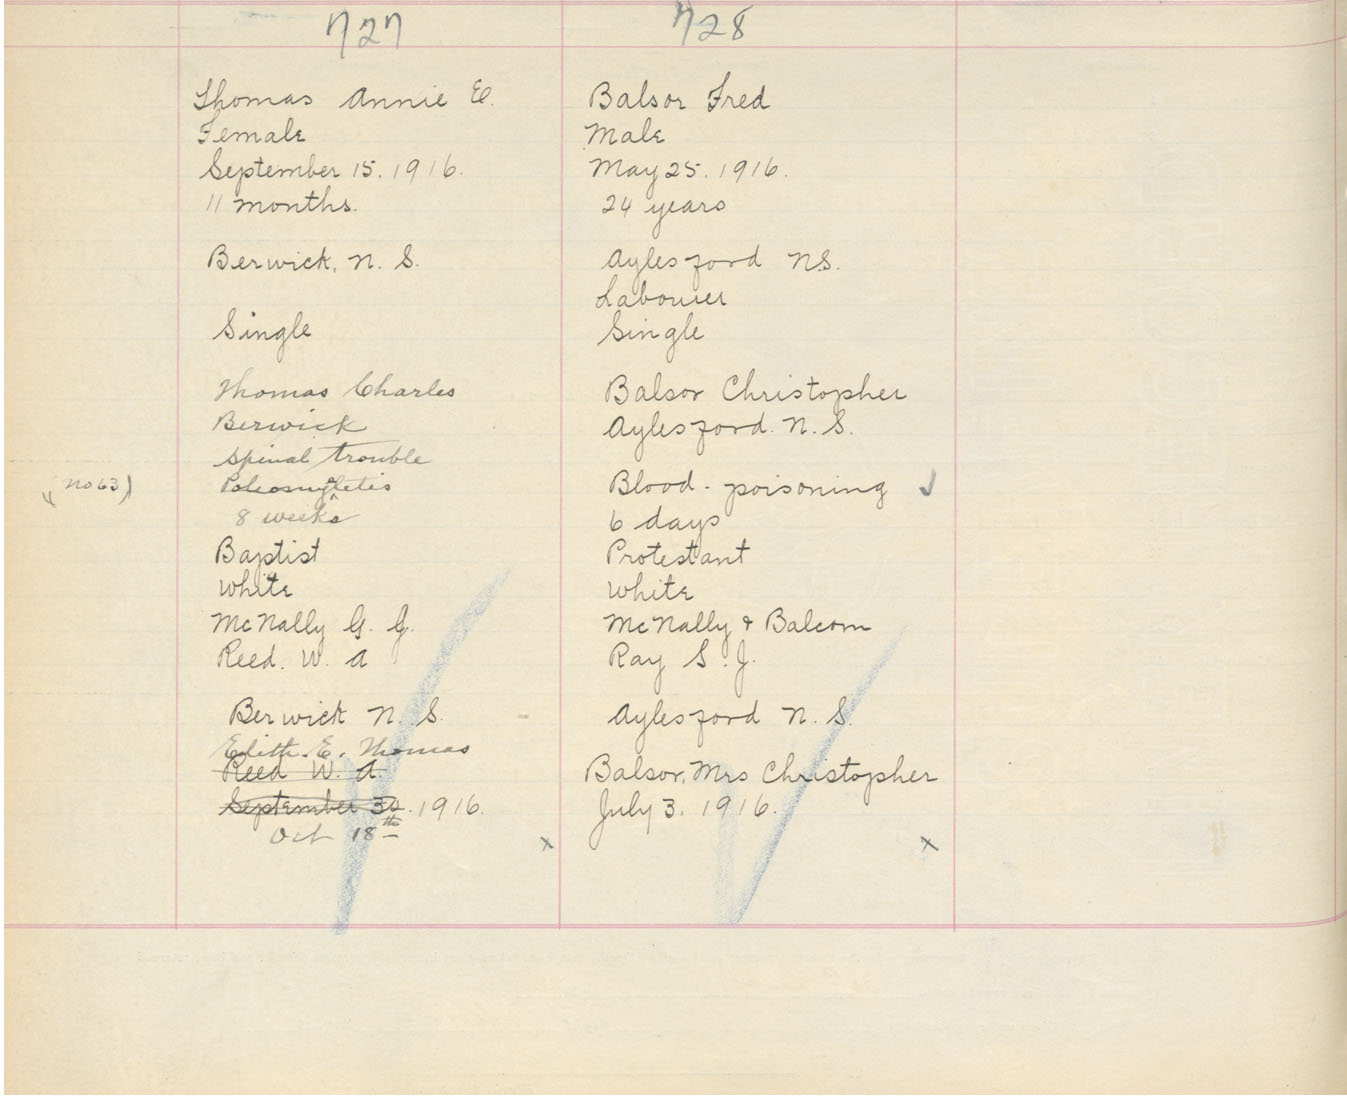 727
Thomas Annie E.
Female
September 15. 1916.
11 months.
Berwick, N. S.
Single
Thomas Charles
Berwick
Spinal trouble
(No 63)
8 weeks
Baptist
White
McNally G. G.
Reed. W. A
Berwick N. S.
Edith. E. Thomas
Reed W. A.
September 30. 1916.
Oct 18th
x
728
Balsor Fred
Male
May 25. 1916.
24 years
Aylesford N.S.
Labourer
Single
Balsor Christopher
Aylesford. N. S.
Blood-poisoning
6 days
Protestant
White
McNally & Balcom
Ray S. J.
Aylesford N. S.
Balsor, Mrs Christopher
July 3, 1916.
x